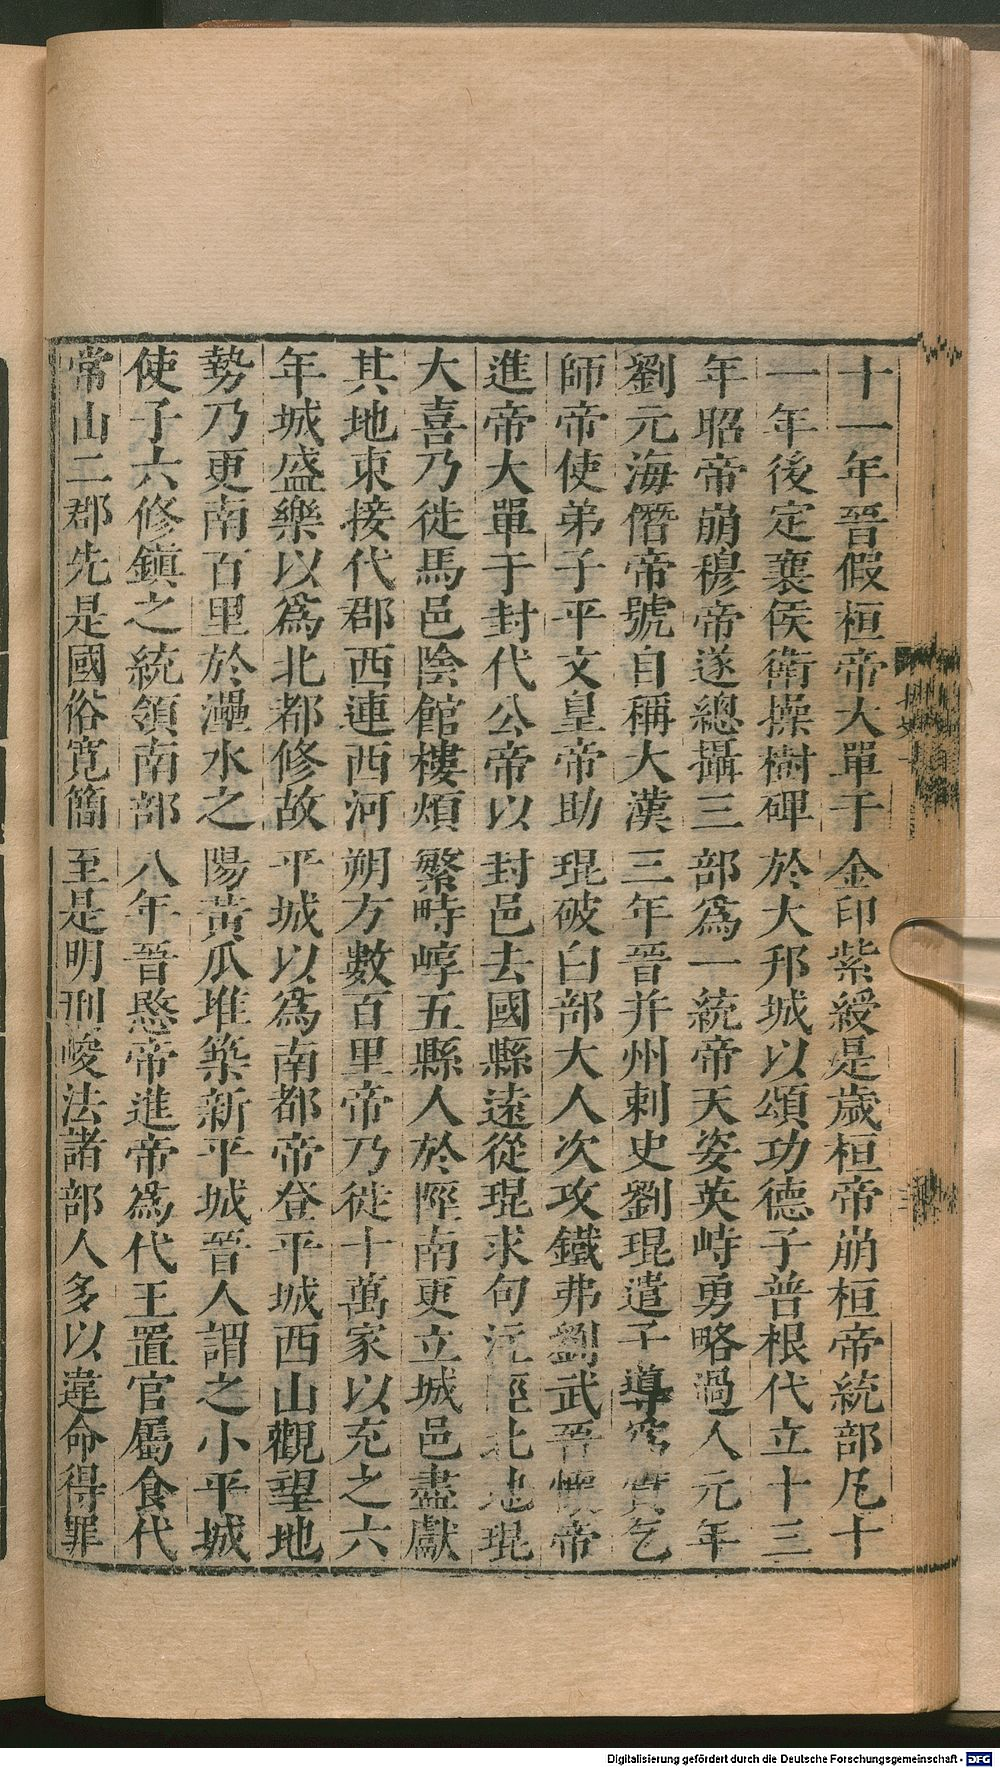 十一年晉假桓帝大單于金印紫綬是歲桓帝崩桓帝統部凡十
一年後定襄侯衛操樹碑於大邗城以頌功德子普根代立十三
年昭帝崩穆帝遂總攝三部爲一統帝天姿英峙勇略過人元年
劉元海僭帝號自稱大漢三年晉并州刺史劉琨遣子導窂質乞
師帝使弟子平文皇帝助琨破白部大人次攻鐵弗劉武晉懷帝
進帝大單于封代公帝以封邑去國縣遠從琨求句陘北地琨
大喜乃徙馬邑陰館樓煩繁畤崞五縣人於陘南更立城邑盡獻
其地東接代郡西連西河朔方數百里帝乃徙十萬家以充之六
年城盛樂以爲北都修故平城以爲南都帝登平城西山觀望地
勢乃更南百里於灅水之陽黃瓜堆築新平城晉人謂之小平城
使子六修鎮之統領南部八年晉愍帝進帝爲代王置官屬食代
常山二郡先是國俗寬簡至是明刑峻法諸部人多以違命得罪
Digitalisierung gefördert durch die Deutsche Forschungsgemeinschaft - DFG